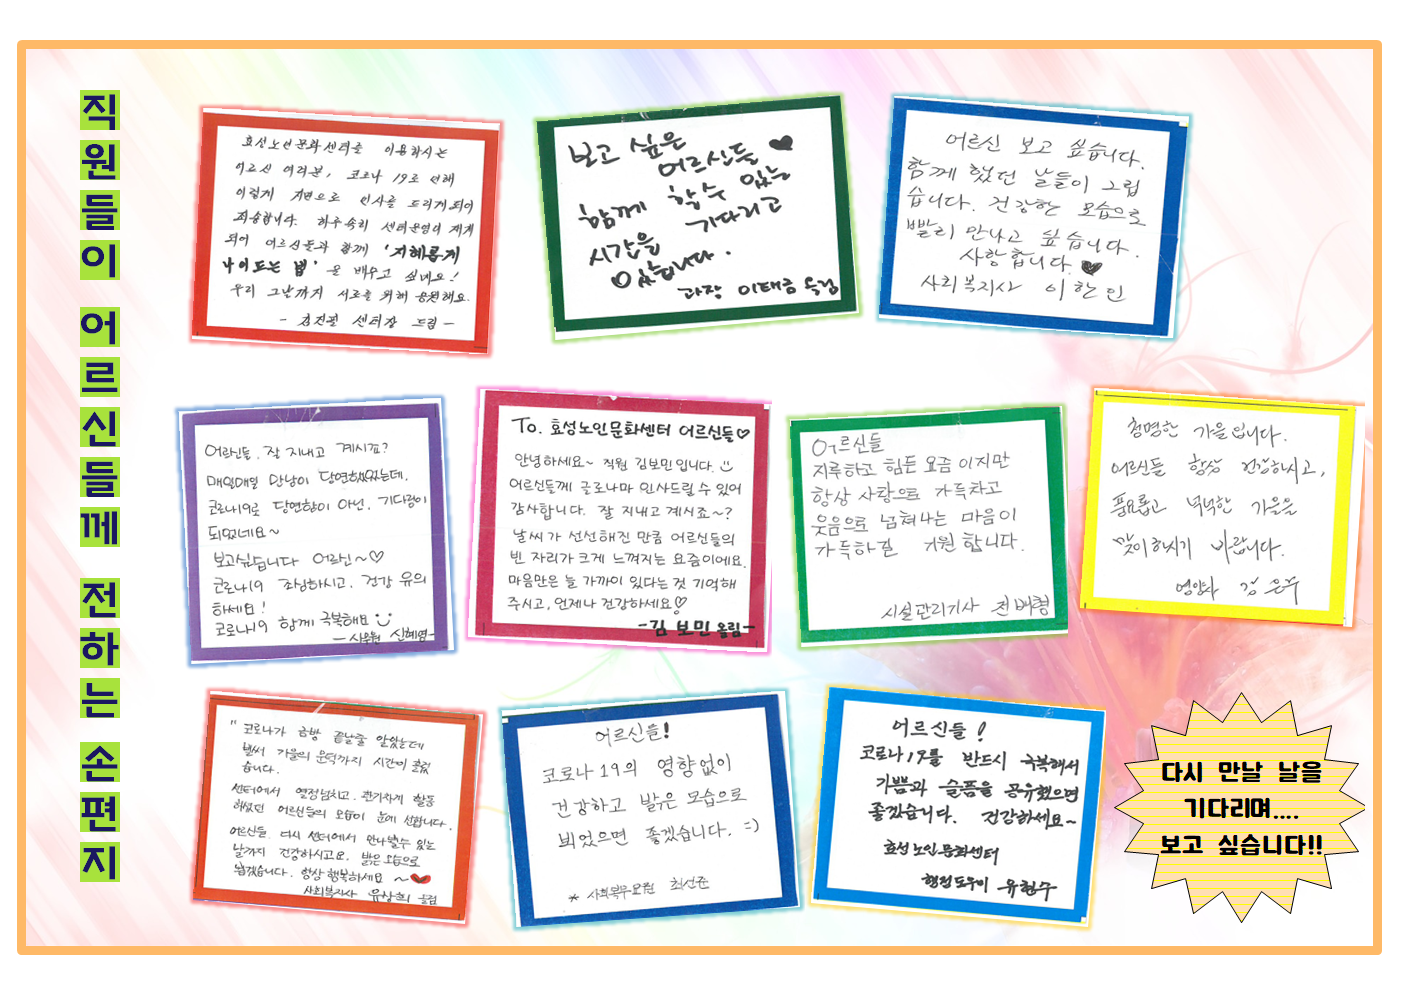 직원들이 어르신들께 전하는 손편지
효성노인문화센터를 이용하시는
어르신 여러분, 코로나 19로 인해
이렇게 지면으로 인사를 드리게되어
죄송합니다. 하루속히 센터운영이 재개
되어 어르신들과 함께 '지혜롭게
나이드는 법' 을 배우고 싶네요!
우리 그날까지 서로를 위해 응원해요.
- 김진필 센터장 드림 -
보고 싶은
어르신들 ♥
함께 할수 있는
시간을 기다리고
있습니다.
과장 이태금 드림
어르신 보고 싶습니다.
함께 했던 날들이 그립
습니다. 건강한 모습으로
빨리 만나고 싶습니다.
사랑합니다. ♥
사회복지사 이한인
어르신들. 잘 지내고 계시죠?
매일매일 만남이 당연했었는데,
코로나19로 당연함이 아닌, 기다림이
되었네요~
보고싶습니다 어르신~♡
코로나19 조심하시고, 건강 유의
하세요!
코로나19 함께 극복해요
- 사무원 신혜영-
To. 효성노인문화센터 어르신들♡
안녕하세요~ 직원 김보민입니다.
어르신들께 글로나마 인사드릴 수 있어
감사합니다. 잘 지내고 계시죠~?
날씨가 선선해진 만큼 어르신들의
빈 자리가 크게 느껴지는 요즘이에요.
마음만은 늘 가까이 있다는 것 기억해
주시고, 언제나 건강하세요♡
-김 보민 올림-
어르신들
지루하고 힘든 요즘 이지만
항상 사랑으로 가득차고
웃음으로 넘쳐나는 마음이
가득하길 기원 합니다.
시설관리기사 전배형
청명한 가을입니다.
어르신들 항상 건강하시고,
풍요롭고 넉넉한 가을을
맞이하시기 바랍니다.
영양사 김은주
" 코로나가 금방 끝날줄 알았는데
벌써 가을의 문턱까지 시간이 흘렀
습니다.
센터에서 열정넘치고, 활기차게 활동
하셨던 어르신들의 모습이 눈에 선합니다.
어르신들 다시 센터에서 만나뵐수 있는
날까지 건강하시고요, 밝은 모습으로
뵙겠습니다. 항상 행복하세요 ~♥
사회복지사 유상희 올림
어르신들!
코로나19의 영향없이
건강하고 밝은 모습으로
뵈었으면 좋겠습니다. =)
* 사회복무요원 최선준
어르신들!
코로나19를 반드시 극복해서
기쁨과 슬픔을 공유했으면
좋겠습니다. 건강하세요~
효성노인문화센터
행정도우미 유현수
다시 만날 날을
기다리며....
보고 싶습니다!!